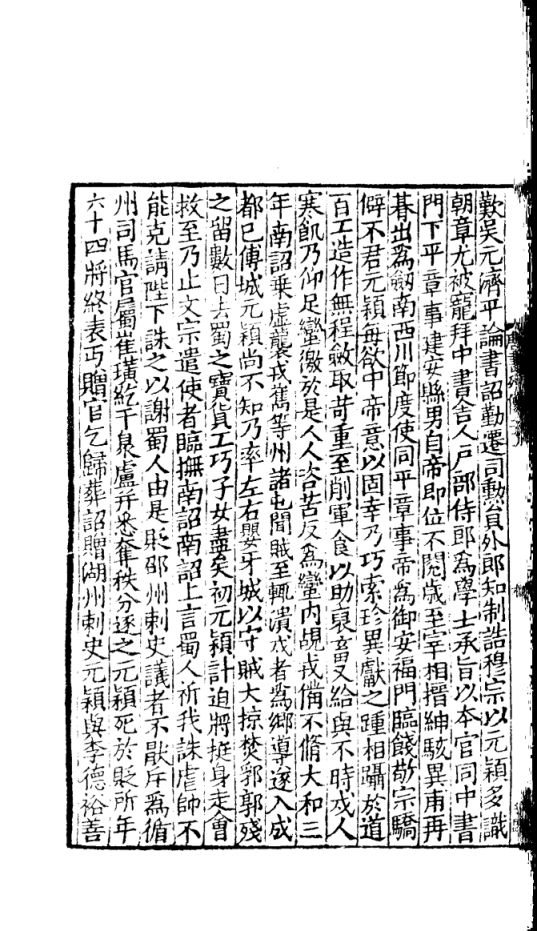 歎吳元濟平論書詔勤遷司勳員外郎知制誥穆宗以元穎多識
朝章尤被寵拜中書舍人戶部侍郎為學士承旨以本官同中書
門下平章事建安縣男自帝即位不閱歲至宰相搢紳駭異甫再
朞出為劒南西川節度使同平章事帝為御安福門臨餞敬宗驕
僻不君元穎每欲中帝意以固幸乃巧索珍異獻之踵相躡於道
百工造作無程斂取苛重至削軍食以助裒畜又給與不時戍人
寒飢乃仰足蠻徼於是人人咨苦反為蠻內覘戎備不脩大和三
年南詔乘虛襲戎嶲等州諸屯聞賊至輒潰戍者為鄉導遂入成
都已傅城元穎尚不知乃率左右嬰牙城以守賊大掠焚郛郭殘
之留數日去蜀之寶貨工巧子女盡矣初元穎計迫將挺身走會
救至乃止文宗遣使者臨撫南詔南詔上言蜀人祈我誅虐帥不
能克請陛下誅之以謝蜀人由是貶邵州刺史議者不厭斥為循
州司馬官屬崔璜紇干臮盧并悉奪秩分逐之元穎死於貶所年
六十四將終表丐贈官乞歸葬詔贈湖州刺史元穎與李德裕善